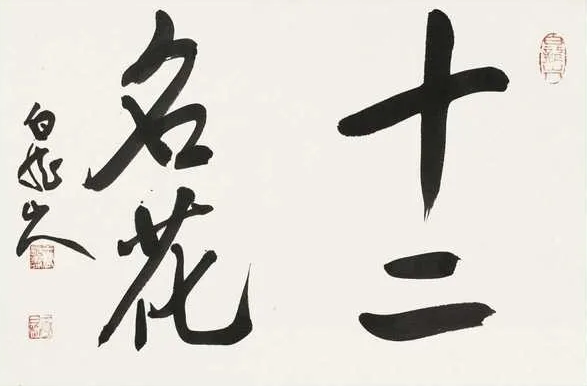 十二
名花
白龍山人